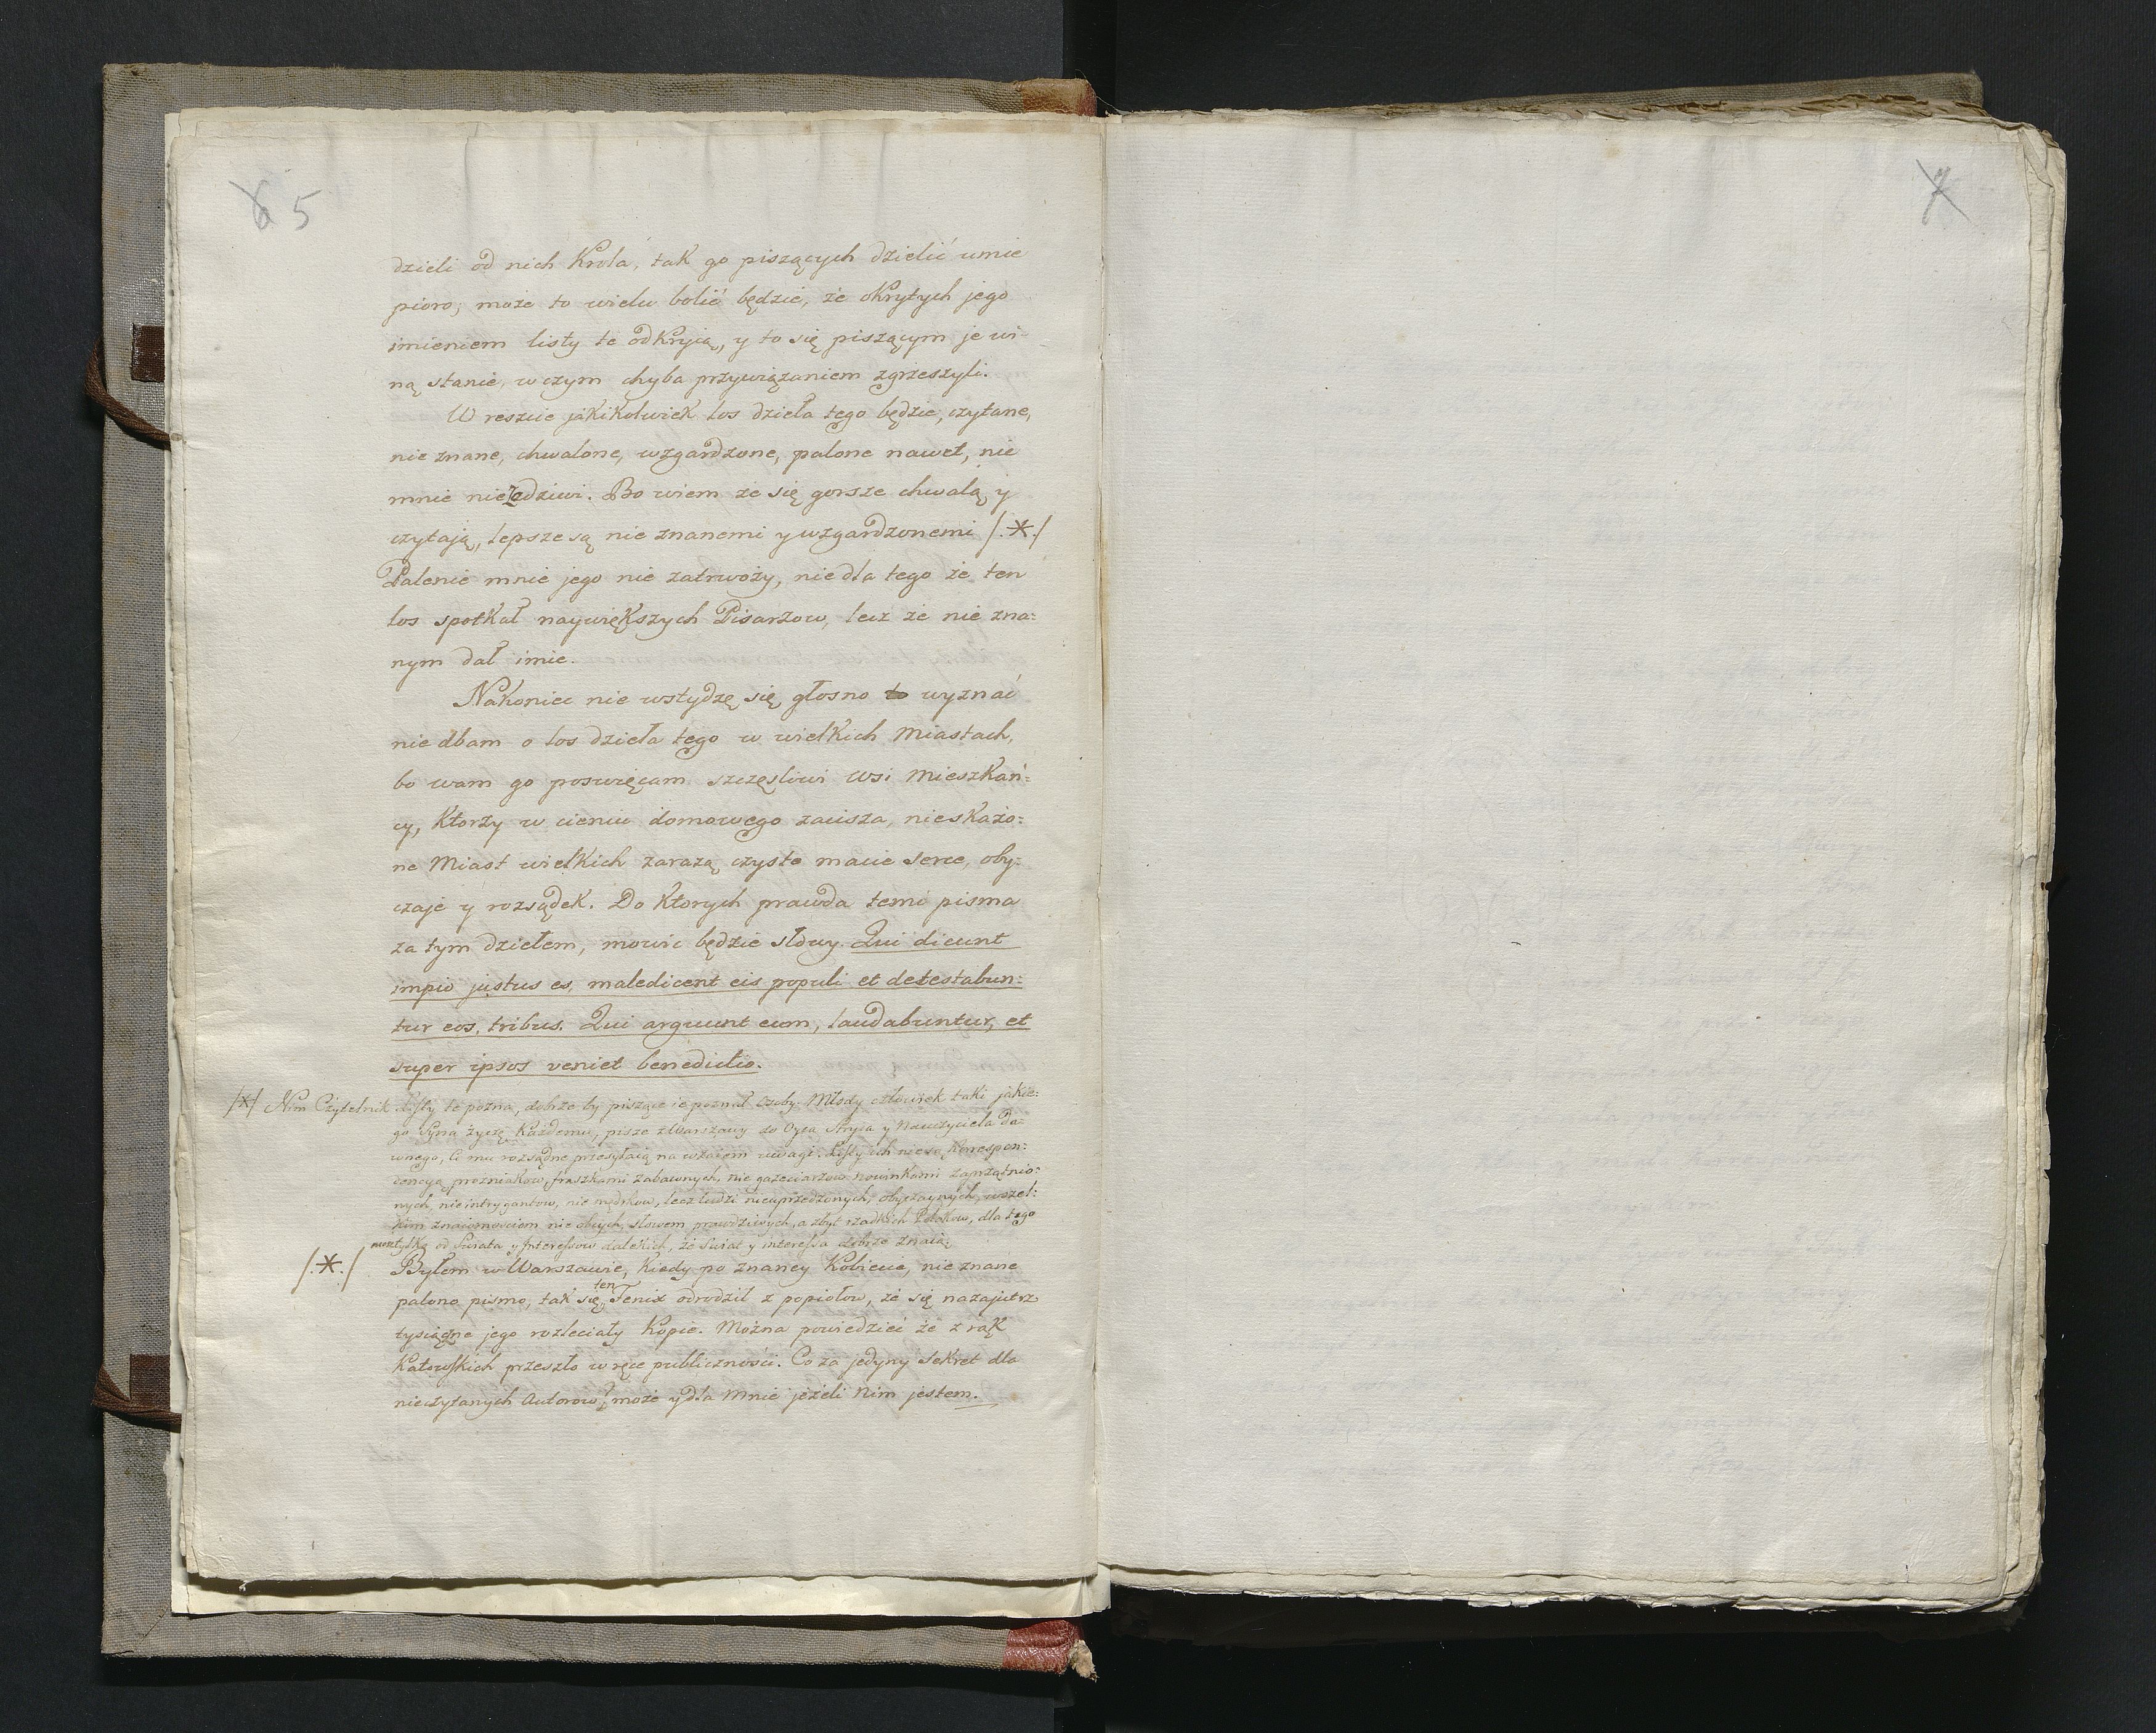 6 5
dzieli od nich Krola, tak go piszących dzielić umie
pioro; może to wielu bolić będzie, że okrytych jego
imieniem listy te odkryią, y to się piszącym je wi-
ną stanie, w czym chyba przywiązaniem zgrzeszyli.
W reszcie jakikolwiek los dzieła tego będzie, czytane,
nie znane, chwalone, wzgardzone, palone nawet, nic
mnie nie zadziwi. Bo wiem że się gorsze chwalą y
czytaią, lepsze są nie znanemi y wzgardzonemi /.*./
Palenie mnie jego nie zatrwoży, nie dla tego że ten
los spotkał naywiększych Pisarzow, lecz że nie zna=
nym dał imie.
Nakoniec nie wstydzę się głosno to wyznać
nie dbam o los dzieła tego w wielkich Miastach,
bo wam go poswięcam szczęsliwi Wsi Mieszkań=
cy, Ktorzy w cieniu domowego zacisza, nieskażo=
ne Miast wielkich zarazą czyste macie serce, oby=
czaje y rozsądek. Do Ktorych prawda temi pisma
za tym dziełem, mowic będzie słowy. Qui dicunt
impio justus es, maledicent eis populi et detestabun=
tur eos, tribus. Qui arguunt eum, laudabuntur, et
super ipsos veniet benedictio.
/x/ Nim Czytelnik Listy te pozna, dobrze by piszące ie poznał Osoby. Młody człowiek taki jakie=
go Syna życzę Każdemu, pisze z Warszawy do Oyca Stryia y Nauczyciela da=
wnego, Ci mu rozsądne przesyłaią na wzaiem uwagi. Listy ich nie są Korrespon=
dencyą prozniakow fraszkami zabawnych, nie gazeciarzow nowinkami zaprzątnio=
nych, nie intrygantow, nie mędrkow, lecz ludzi nieuprzedzonych, obyczaynych, wszel=
kim znaiomosciom nie obcych, słowem prawdziwych, a zbyt rzadkich Polakow, dla tego
tylko od Swiata y Interessow dalekich, że swiat y interessa dobrze znaią.
/.*./ Byłem w Warszawie, Kiedy po znaney Kobiecie, nie znane
palono pismo, tak się ten Fenix odrodził z popiołow, że się nazajutrz
tysiączne jego rozleciały Kopie. Można powiedzieć że z rąk
Katowskich przeszło w ręce publiczności. Co za jedyny sekret dla
nieczytanych Autorow! może y dla Mnie jeżeli Nim jestem.
7